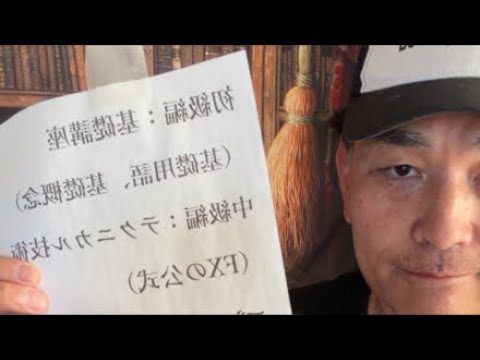 初級編：基礎講座
(基礎用語、基礎概念)
中級編：テクニカル技術
(FXの公式)